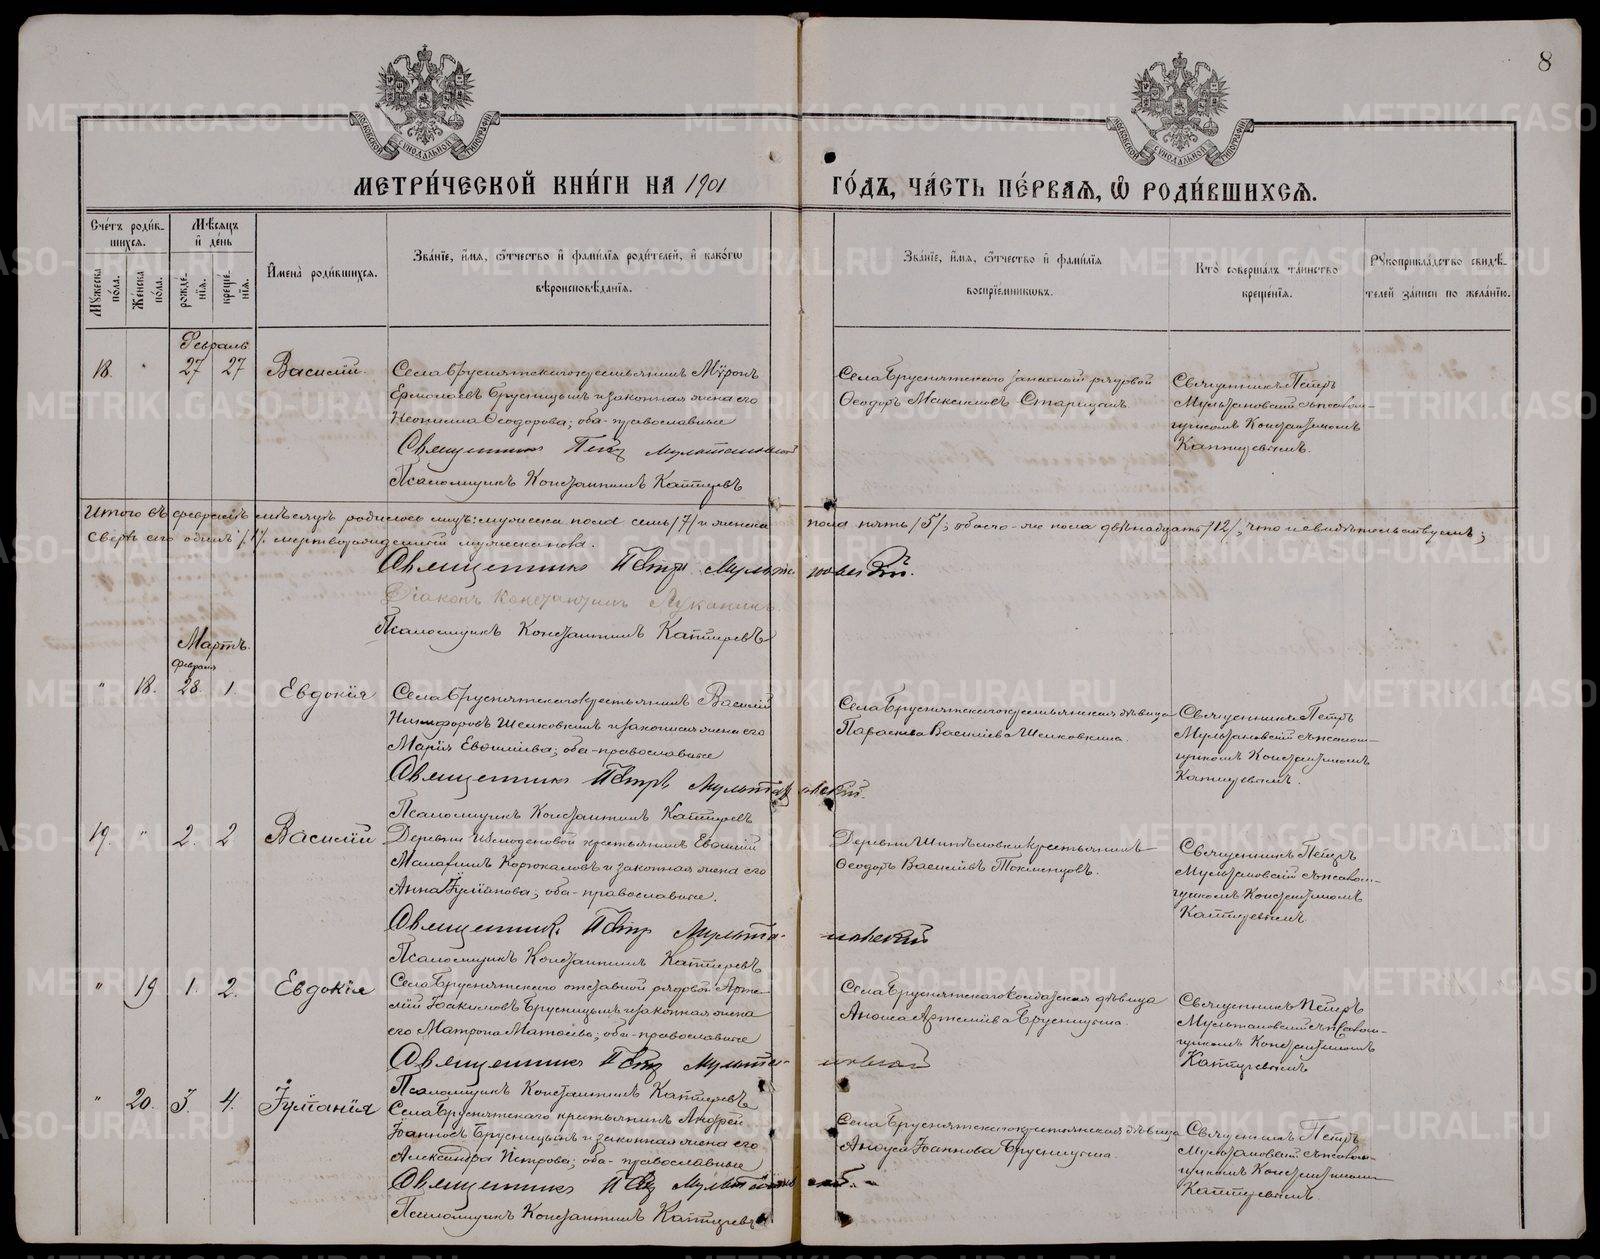 8
МЕТРИ́ЧЕСКОЙ КНИ́ГИ НА 1901 ГО́ДЪ, ЧА́СТЬ ПЕ́РВАЯ, Ѡ РОДИ́ВШИХСЯ.
Сче́тъ роди́в-
шихся.
Мѣсяцъ
и҆ де́нь
Мꙋжеска по́ла.
Женска по́ла.
рожде́-
нїя.
креще́-
нїя.
И҆мена̀ роди́вшихся.
Зва́нїе, и҆́мя, ѻ҆́тчество и҆ фами́лїя роди́телей, и҆ како́гѡ
вѣроисповѣ́данїя.
Зва́нїе, и҆́мя, ѻ҆́тчество и҆ фами́лїя
воспрїе́мникѡвъ.
Кто̀ соверша́лъ та́инство
креще́нїя.
Рꙋкоприкла́дство свидѣ́-
телей за́писи по жела́нїю.
Февраль
18. " 27 27 Василій.
Села Бруснятскаго крестьянинъ Мѵронъ
Ермолаевъ Брусницынъ и законная жена его
Неонилла Ѳеодорова; оба православные
Священникъ Петръ Мультановскій
Псаломщикъ Константинъ Каптыревъ
Села Бруснятскаго запасный рядовой
Ѳеодоръ Максимовъ Старицынъ.
Священникъ Петръ
Мультановскій съ псалом-
щикомъ Константиномъ
Каптыревымъ.
Итого въ февралѣ мѣсяцѣ родилось лицъ: мужеска пола семь /7/ и женска пола пять /5/; обоего-же пола двѣнадцать /12/, что и свидѣтельствуемъ;
Сверхъ сего одинъ /1/ мертворожденный мужеска пола.
Священникъ Петръ Мультановскій.
Діаконъ Константинъ Луканинъ
Псаломщикъ Константинъ Каптыревъ
Мартъ.
Февраля
" 18. 28. 1. Евдокія
Села Бруснятскаго крестьянинъ Василій
Никифоровъ Шелковкинъ и законная жена его
Марія Евѳиміева; оба-православные
Священникъ Петръ Мультановскій.
Псаломщикъ Константинъ Каптыревъ
Села Бруснятскаго крестьянская дѣвица
Параскева Василіева Шелковкина.
Священникъ Петръ
Мультановскій съ псалом-
щикомъ Константиномъ
Каптыревымъ.
19. " 2. 2 Василій
Деревни крестьянинъ Евѳимій
Малаѳіинъ Корюкаловъ и законная жена его
Анна Іуліанова; оба-православные.
Священникъ Петръ Мультановскій
Псаломщикъ Константинъ Каптыревъ
Деревни Шипѣловки крестьянинъ
Ѳеодоръ Василіевъ Токманцовъ.
Священникъ Петръ
Мультановскій съ псалом-
щикомъ Константиномъ
Каптыревымъ
" 19 1. 2. Евдокія
Села Бруснятскаго отставной рядовой Арте-
мій Іоакимовъ Брусницынъ и законная жена
его Матрона Матѳіева; оба-православные
Священникъ Петръ Мультановскій
Псаломщикъ Константинъ Каптыревъ
Села Бруснятскаго солдатская дѣвица
Анѳиса Артеміева Брусницына.
Священникъ Петръ
Мультановскій съ псалом-
щикомъ Константиномъ
Каптыревымъ
" 20. 3. 4. Іуліанія
Села Бруснятскаго крестьянинъ Андрей
Іоанновъ Брусницынъ и законная жена его
Александра Петрова; оба-православные
Священникъ Петръ Мультановскій
Псаломщикъ Константинъ Каптыревъ
Села Бруснятскаго крестьянская дѣвица
Анѳуса Іоаннова Брусницына.
Священникъ Петръ
Мультановскій съ псалом-
щикомъ Константиномъ
Каптыревымъ.
METRIKI.GASO-URAL.RU